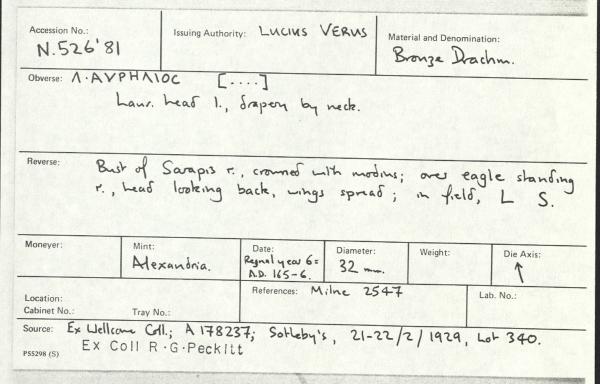 Accession No.: N.526'81
Issuing Authority: LUCIUS VERUS
Material and Denomination: Bronze Drachm.
Obverse: Λ·ΑVΡΗΛΙΟC [....]
Laur. head l., drapery by neck.
Reverse: Bust of Sarapis r., crowned with modius; over eagle standing
r., head looking back, wings spread; in field, L S.
Moneyer:
Mint: Alexandria.
Date: Regnal year 6=
A.D. 165-6.
Diameter: 32 mm.
Weight:
Die Axis: ↑
Location:
Cabinet No.: Tray No.:
References: Milne 2547
Lab. No.:
Source: Ex Wellcome Coll.; A 178237; Sotheby's, 21-22/2/1929, Lot 340.
Ex Coll R·G·Peckitt
PS5298 (S)